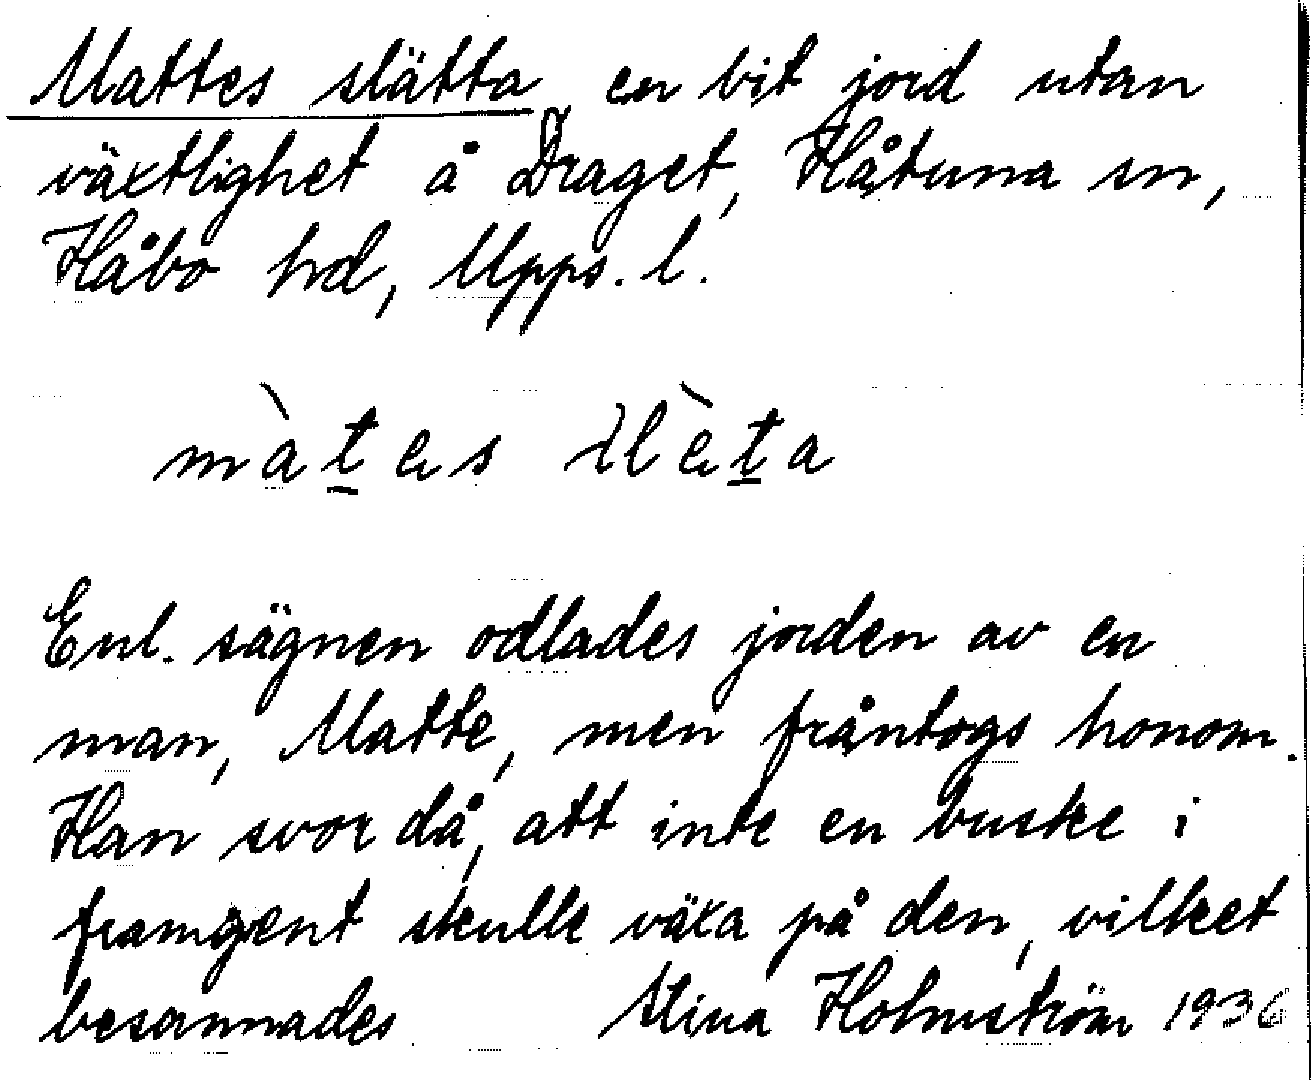 Mattes slätta en bit jord utan
växtlighet å Draget, Håtuna sn,
Håbo hd, Upps. l.
màtes slèta
Enl. sägnen odlades jorden av en
man, Matte, men fråntogs honom.
Han svor då, att inte en buske i
framgent skulle växa på den, vilket
besannades Stina Holmström 1936